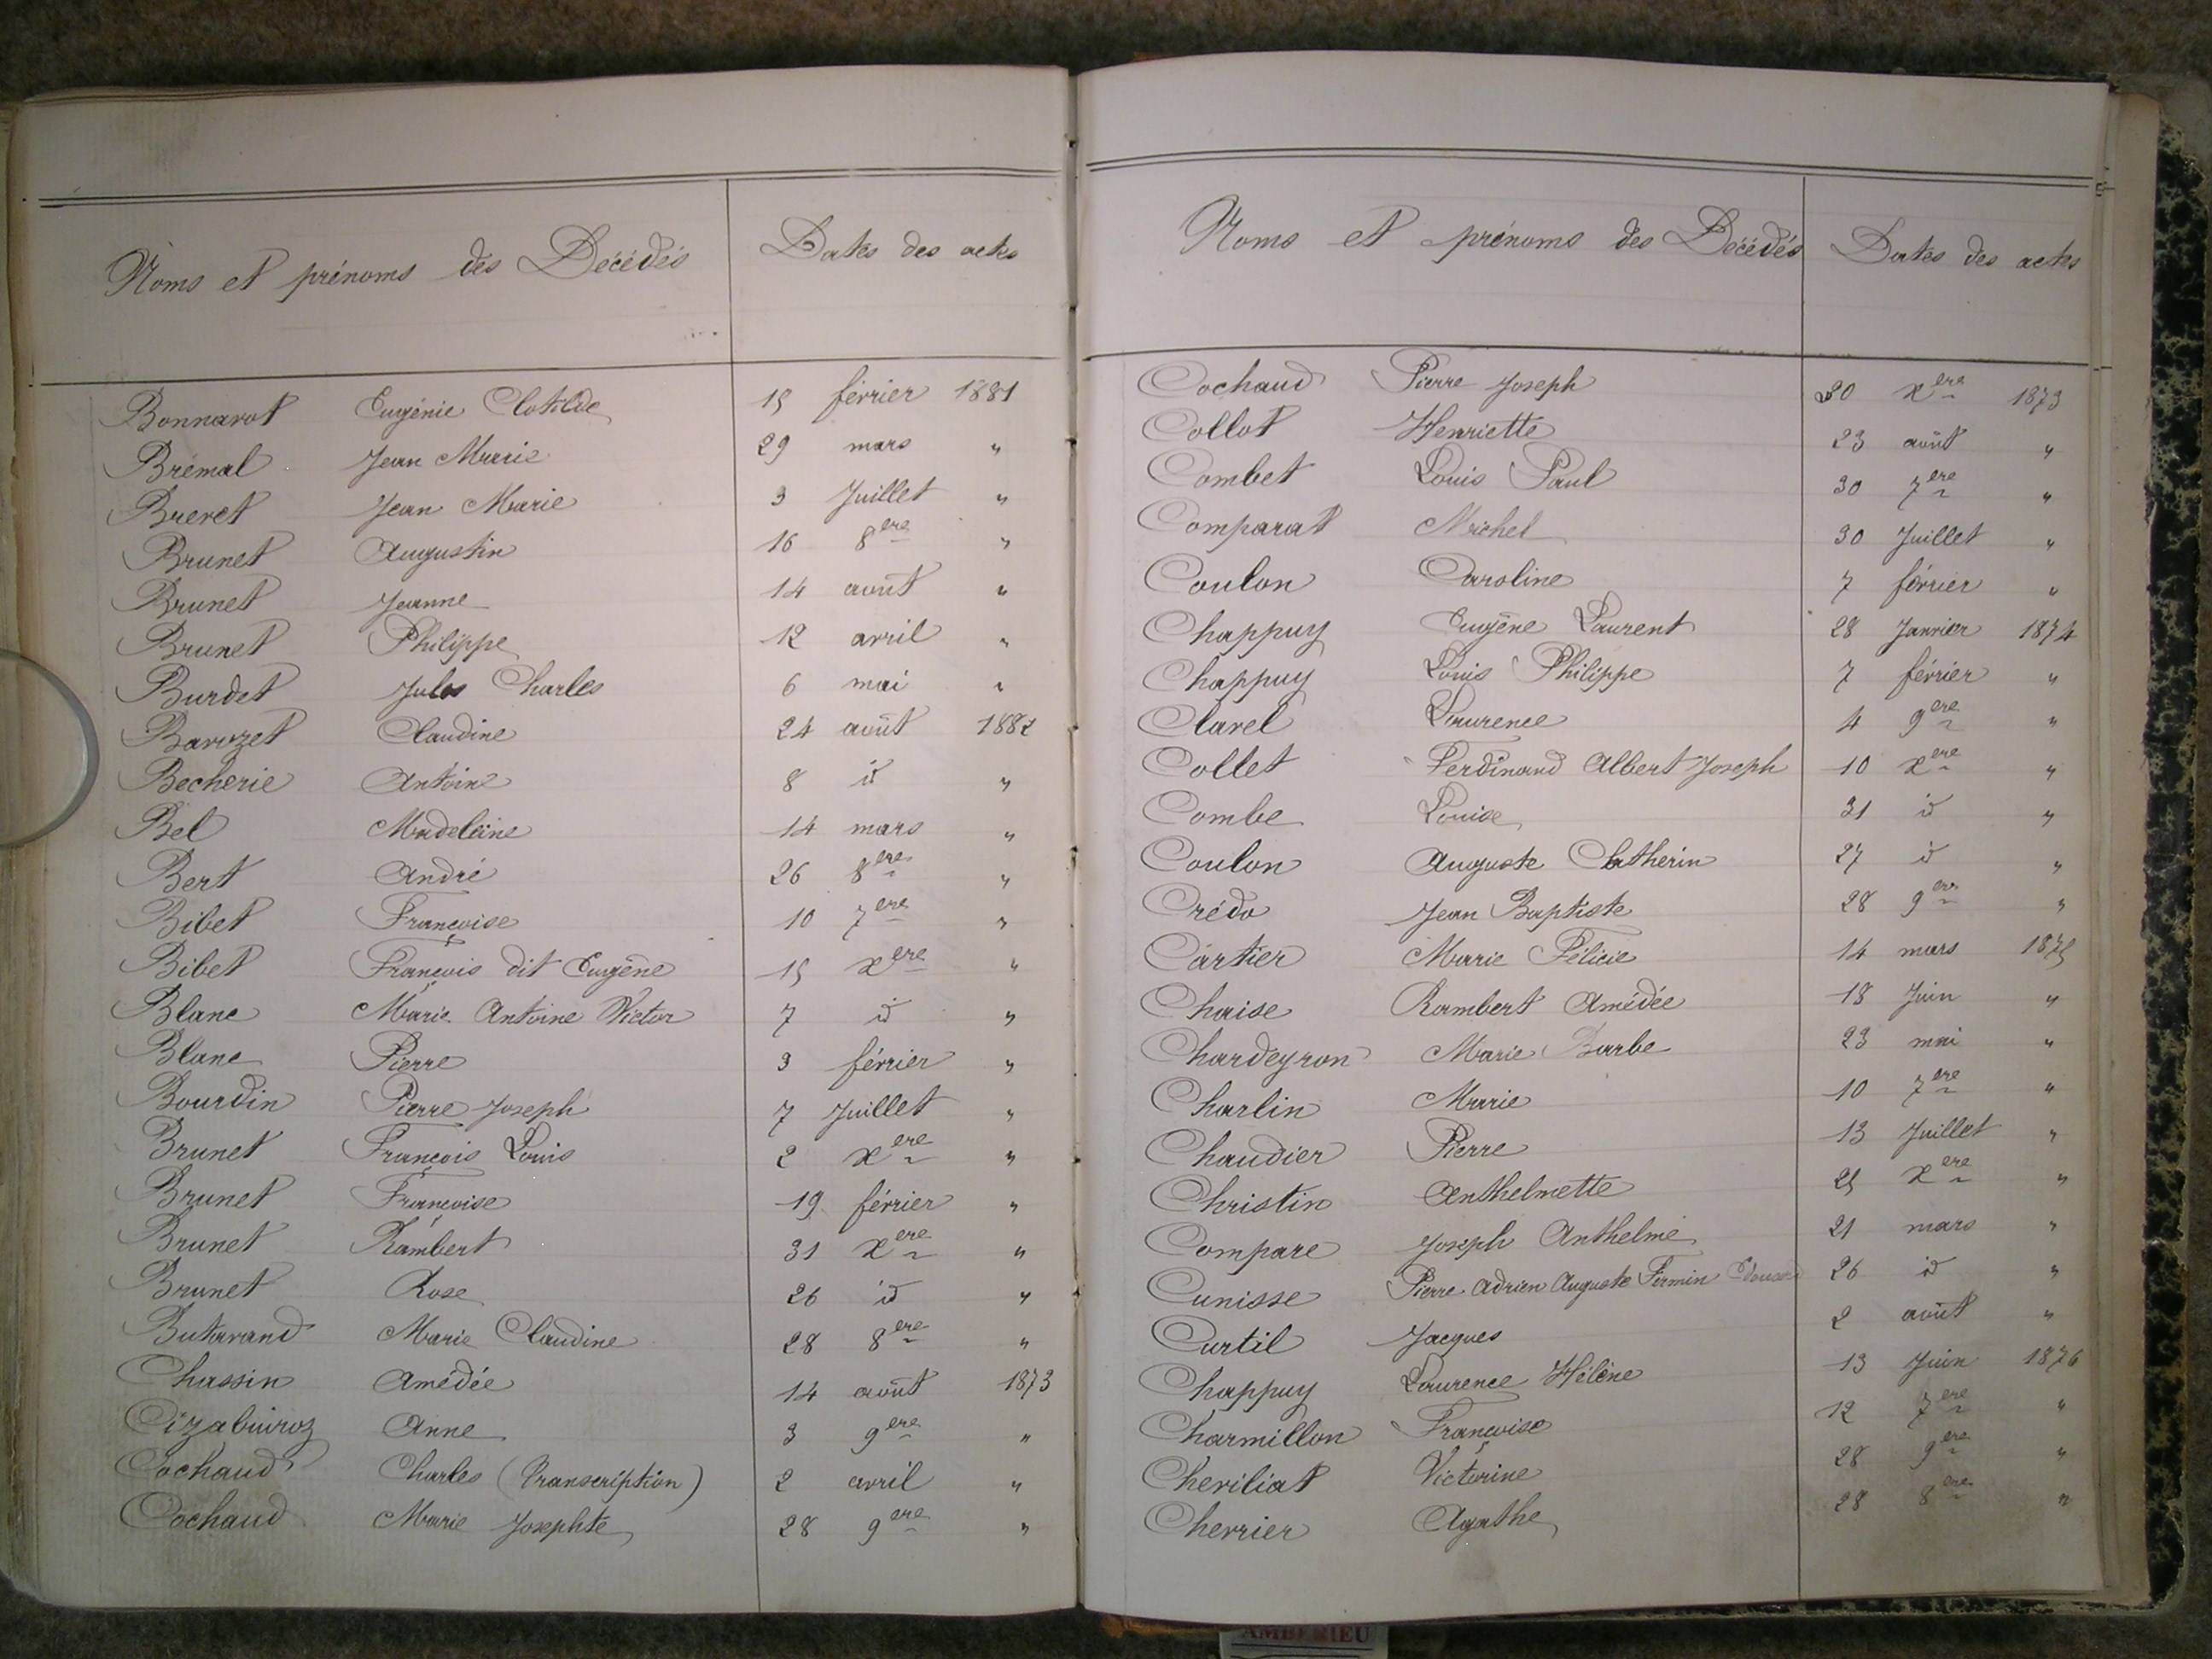 Noms et prénoms des Décédés Dates des actes
Bonnarot Eugénie Clotilde 15 février 1881
Brémal Jean Marie 29 mars "
Breret Jean Marie 3 Juillet "
Brunet Augustin 16 8ere "
Brunet Jeanne 14 août "
Brunet Philippe 12 avril "
Burdet Jules Charles 6 mai "
Barozet Claudine 24 août 1882
Becherie Antoine 8 id "
Bel Madeleine 14 mars "
Bert André 26 8ere "
Bibet Françoise 10 7ere "
Bibet François dit Eugène 15 xere "
Blanc Marie Antoine Victor 7 id "
Blanc Pierre 3 février "
Bourdin Pierre Joseph 7 Juillet "
Brunet François Louis 2 xere "
Brunet Françoise 19 février "
Brunet Rambert 31 xere "
Brunet Rose 26 id "
Butavand Marie Claudine 28 8ere "
Chassin Amédée 14 août 1873
Cizabuiroz Anne 3 9ere "
Cochaud Charles (Transcription) 2 avril "
Cochaud Marie Josephte 28 9ere "
Noms et prénoms des Décédés Dates des actes
Cochaud Pierre Joseph 20 xere 1873
Collot Henriette 23 août "
Combet Louis Paul 30 7ere "
Comparat Michel 30 Juillet "
Coulon Caroline 7 février "
Chappuy Eugène Laurent 28 Janvier 1874
Chappuy Louis Philippe 7 février "
Clarel Laurence 4 9ere "
Collet Ferdinand Albert Joseph 10 xere "
Combe Louise 31 id "
Coulon Auguste Catherin 27 id "
Crédo Jean Baptiste 28 9ere "
Cartier Marie Félicie 14 mars 1875
Chaise Rambert Amédée 18 Juin "
Chardeyron Marie Barbe 23 mai "
Charlin Marie 10 7ere "
Chaudier Pierre 13 Juillet "
Christin Anthelmette 25 xere "
Compare Joseph Anthelme 21 mars "
Cunisse Pierre Adrien Auguste Firmin Edouard 26 id "
Curtil Jacques 2 août "
Chappuy Laurence Hélène 13 Juin 1876
Charmillon Françoise 12 7ere "
Cheriliat Victorine 28 9ere "
Cherrier Agathe 28 8ere "
AMBERIEU